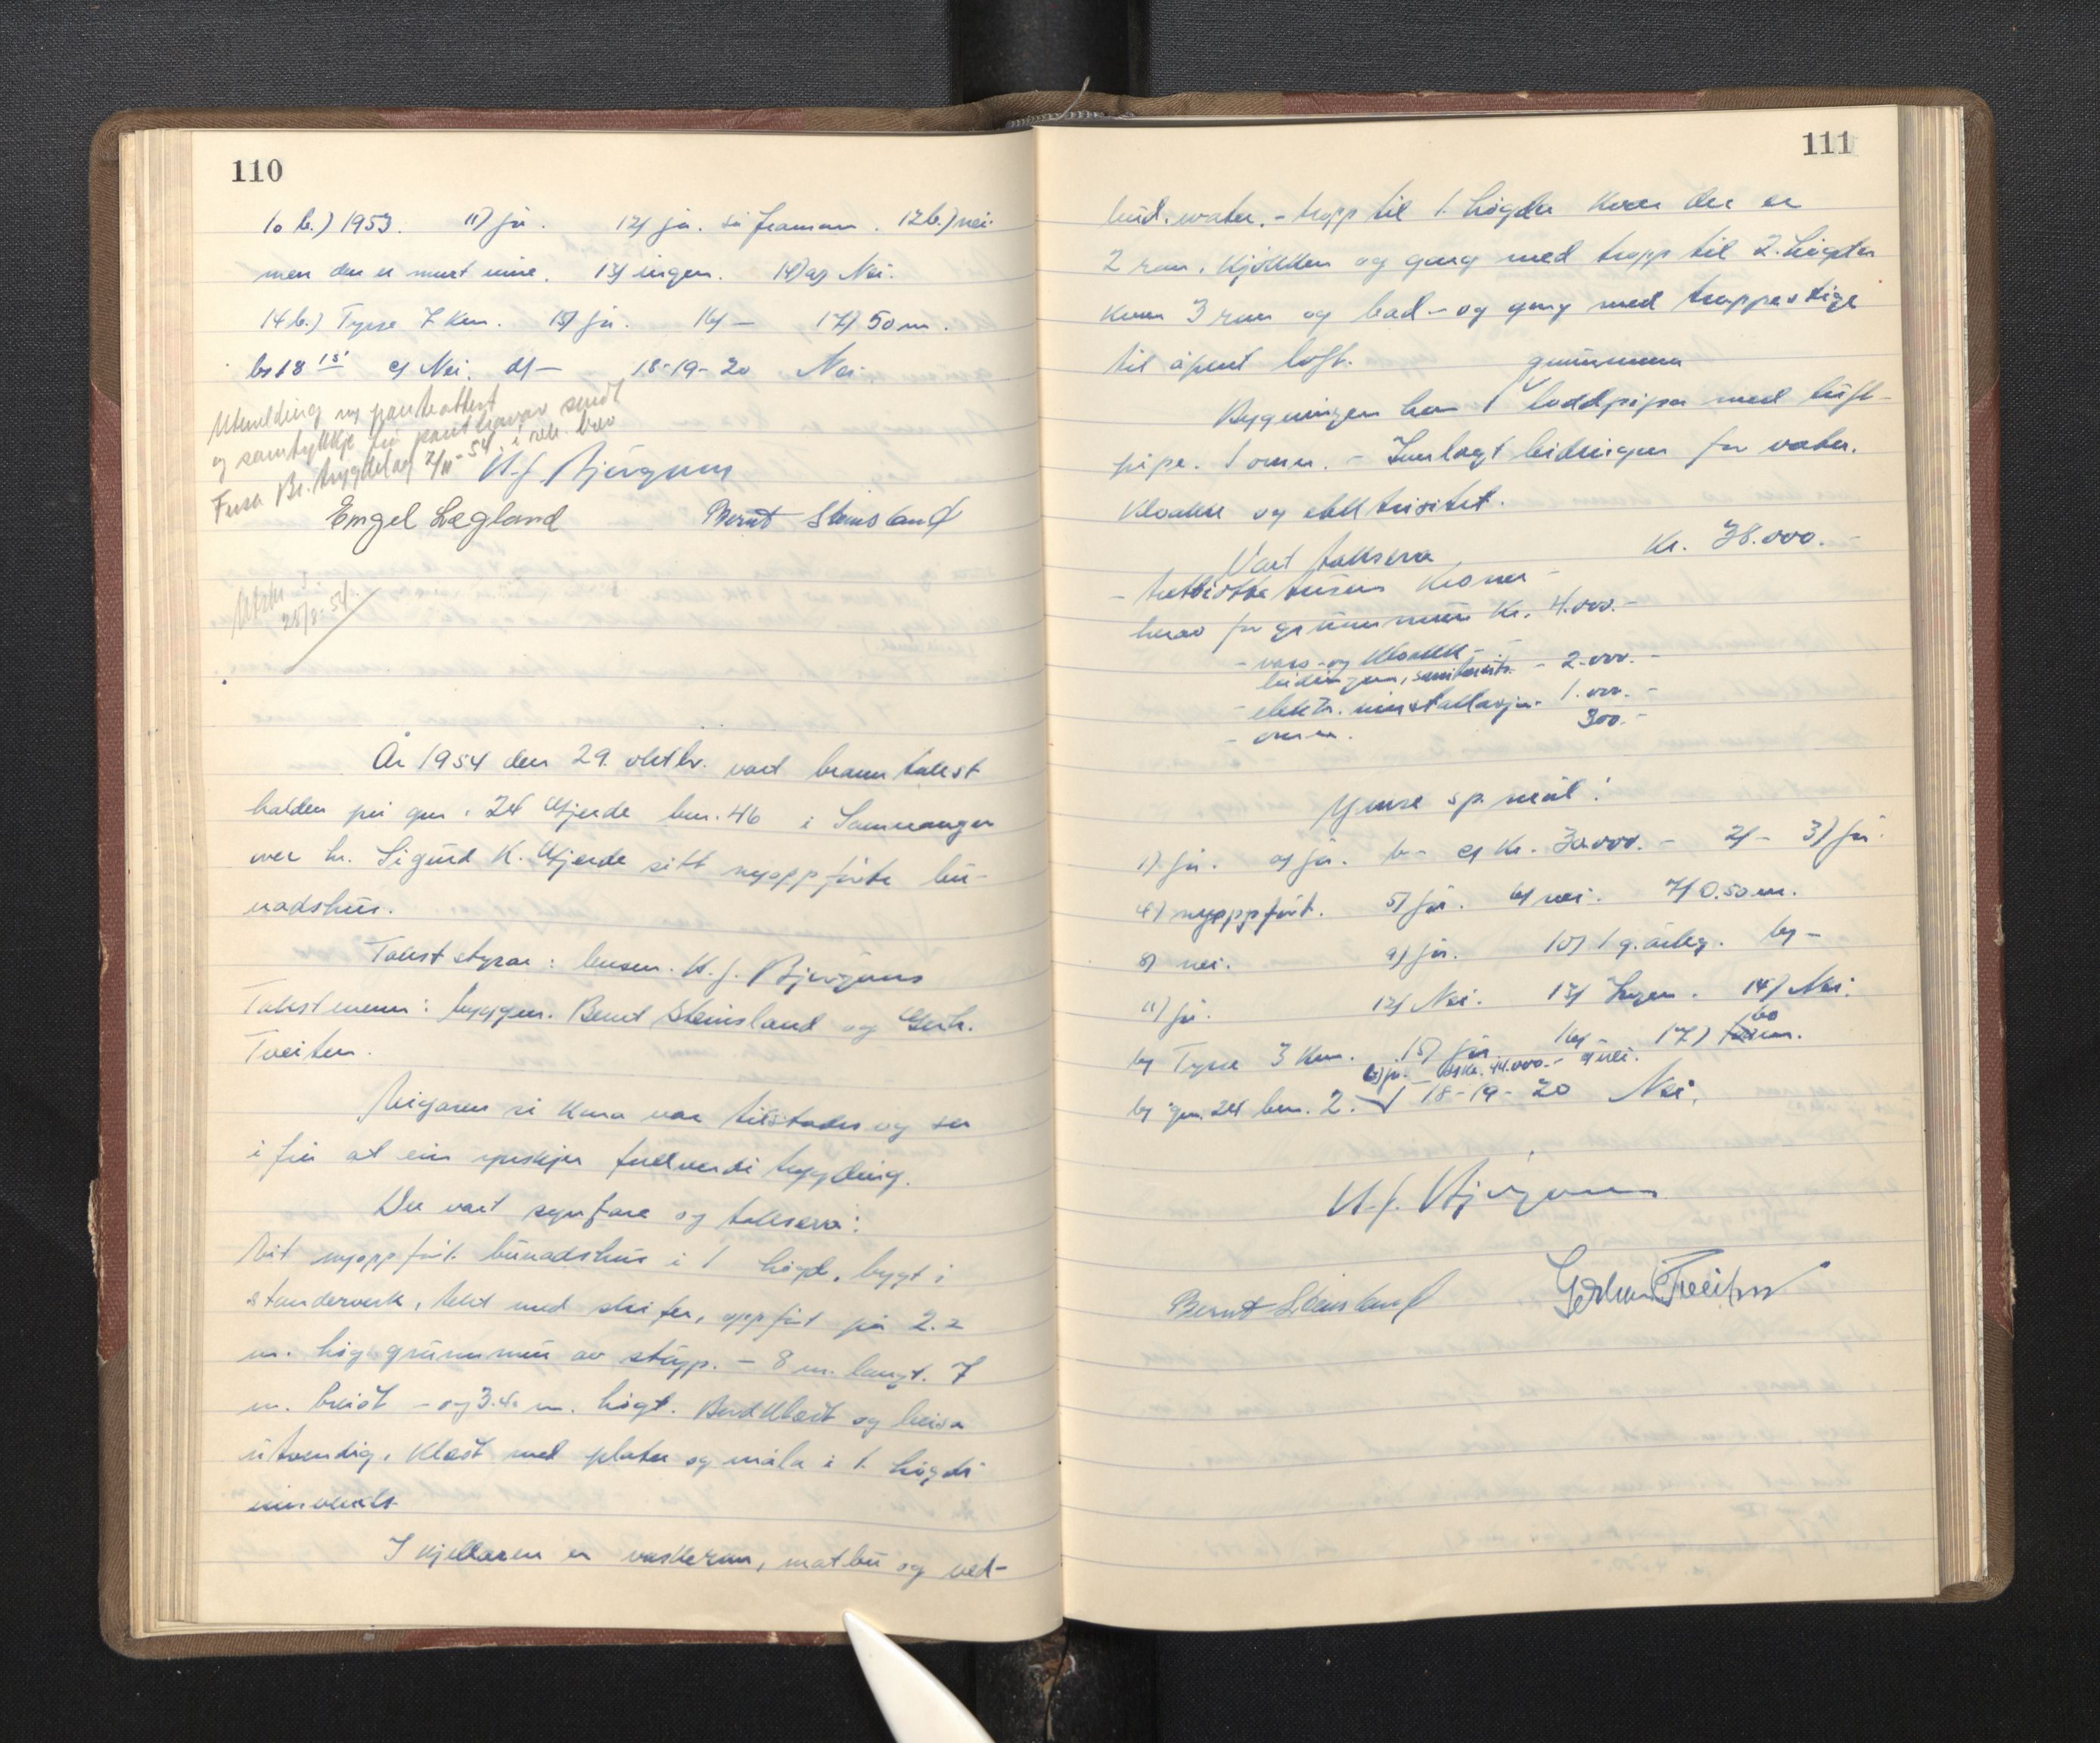 110
10 b.) 1953. 11) ja. 12) ja. så framom. 12b.) nei
men der er murt inne. 13) ingen. 14) a) Nei.
14 b.) Tysse 7 km. 15) ja. 16) — 17) 50 m.
b) 18 c) Nei. d) — 18-19-20 Nei.
Utmelding og panteattest
og samtykkje frå panthavar sendt
Fusa Br. trygdelag 2/11-54 i rek. brev
Engel Lægland Bernt Steinsland
28/8-54.
År 1954 den 29. oktbr. vart branntakst
halden på gnr. 24 bnr. 46 i Samnanger
over hr. Sigurd K. sitt nyoppførte bu-
nadshus.
Takststyrar: lensm.
Takstmenn: byggm. Bernt Steinsland og Gerh.
Tveiten.
Eigaren si kona var tilstades og sa
i frå at ein ynskjer fullverdi trygding.
Der vart synfare og taksera:
Eit nyoppført bunadshus i 1 høgd, bygt i
standerverk, tekt med skifer, oppført på 2.2
m. høg grunnmur av støyp. – 8 m. langt. 7
m. breidt – og 3.4 m. høgt. Bordklædt og beisa
utvendig. Klædt med plater og måla i 1. høgdi
innvendes.
I kjellaren er vaskerom, matbu og ved-
111
bud. – trapp til 1. høgda kvar der er
2 rom, kjøkken og gang med trapp til 2. høgda
kvar 3 rom og bad – og gang med trappestige
til åpent loft.
grunnmura
Bygningen har 1 loddpipa med luft-
pipe. 1 omn. – Innlagt leidningar for vatn.
kloakk og elektrisitet.
Vart taksera Kr. 38.000. –
– trettiåtte tusen kroner –
herav for grunnmur Kr. 4.000.–
– vass- og kloakk-
leidningar, sanitærits. – 2.000. –
– elektr. installasjon – 1.000. –
– omn. 300. –
Ymse sp.mål:
1) ja. a) ja. b – c) Kr. 30.000. – 2) – 3) ja.
4) nyoppført. 5) ja. 6) nei. 7) 0.50 m.
8) nei. 9) ja. 10) 1 g. årleg. b) –
11) ja. 12) Nei. 13) Ingen. 14) Nei.
60
b) Tysse 3 km. 15) ja. 16) 17) m.
b) ja. 44.000.– c) nei.
b) gnr. 24 bnr. 2. 18-19-20 Nei.
Bernt Steinsland Tveiten